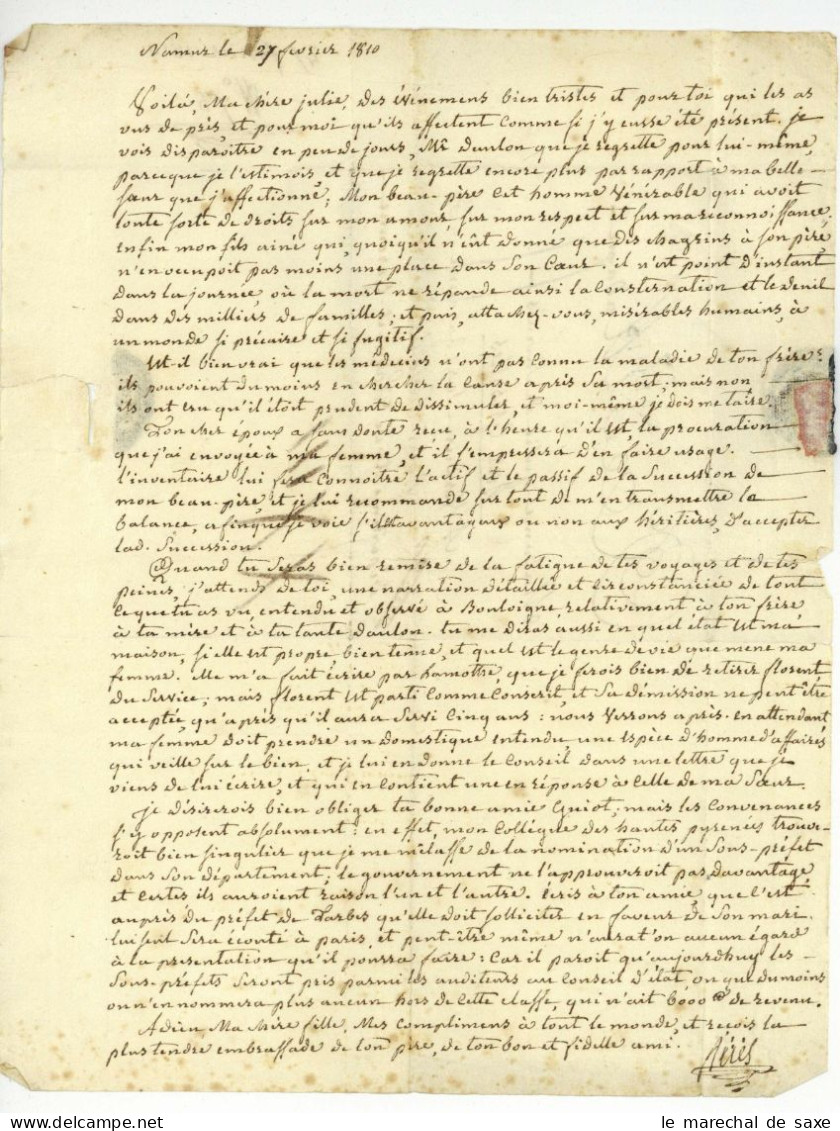 Namur le 27 fevrier 1810
Voilà, Ma chère julie, des événemens bien tristes et pour toi qui les as
vus de près, et pour moi qu'ils affectent comme si j'y eusse été présent. je
vois disparoître en peu de jours, Mr. Daulon que je regrette pour lui-même,
parceque je l'estimois, et que je regrette encore plus par rapport à ma belle-
sœur que j'affectionne; Mon beau-père cet homme vénérable qui avoit
toute sorte de droits sur mon amour sur mon respect et sur ma reconnoissance,
enfin mon fils ainé qui, quoiqu'il n'eût donné que des chagrins à son père
n'en occupoit pas moins une place dans son cœur. il n'est point d'instant
dans la journée, où la mort ne répande ainsi la consternation et le deuil
dans des milliers de familles; et puis, attachez-vous, misérables humains, à
un monde si précaire et si fugitif.
Est-il bien vrai que les médecins n'ont pas connu la maladie de ton frère?
ils pouvoient du moins en chercher la cause après sa mort; mais non
ils ont cru qu'il étoit prudent de dissimuler, et moi-même je dois me taire.
Ton cher époux a sans doute recu, à l'heure qu'il est, la procuration
que j'ai envoyée à ma femme, et il s'empressera d'en faire usage.
l'inventaire lui fera connoître l'actif et le passif de la succession de
mon beau-père, et je lui recommande sur tout de m'en transmettre la
balance, afin que je voie s'il est avantageux ou non aux héritières, d'accepter
lad. succession.
Quand tu seras bien remise de la fatigue de tes voyages et de tes
peines, j'attends de toi, une narration détaillée et circonstanciée de tout
ce que tu as vu, entendu et observé à Bouloigne relativement à ton frère
à ta mère et à ta tante Daulon. tu me diras aussi en quel état est ma
maison, si elle est propre bien tenue, et quel est le genre de vie que mene ma
femme. Elle m'a fait écrire par hamothe, que je ferois bien de retirer florent
du service; mais florent est parti comme conscrit, et sa démission ne peut être
acceptée, qu'après qu'il aura servi cinq ans: nous verrons après. en attendant
ma femme doit prendre un domestique entendu, une espèce d'homme d'affaires
qui veille sur le bien, et je lui en donne le conseil dans une lettre que je
viens de lui écrire, et qui en contient une en réponse à celle de ma sœur.
je désirerois bien obliger ta bonne amie Guiot, mais les convenances
s'y opposent absolument: en effet, mon collègue des hautes pyrenées trouve-
roit bien singulier que je me mêlasse de la nomination d'un sous-préfet
dans son département; le gouvernement ne l'approuveroit pas davantage
et certes ils auroient raison l'un et l'autre. Ecris à ton amie que c'est
auprès du préfet de Tarbes qu'elle doit solliciter en faveur de son mari
lui seul sera écouté à paris, et peut-être même n'aurat'on aucun égard
à la présentation qu'il pourra faire: car il paroit qu'aujourdhuy les
sous-préfets seront pris parmi les auditeurs au conseil d'état, ou que du moins
on n'en nommera plus aucun hors de cette classe, qui n'ait 6000 de revenu.
Adieu, Ma chère fille. Mes complimens à tout le monde, et recois la
plus tendre embrassade de ton père, de ton bon et fidelle ami. Pérès
le marechal de saxe